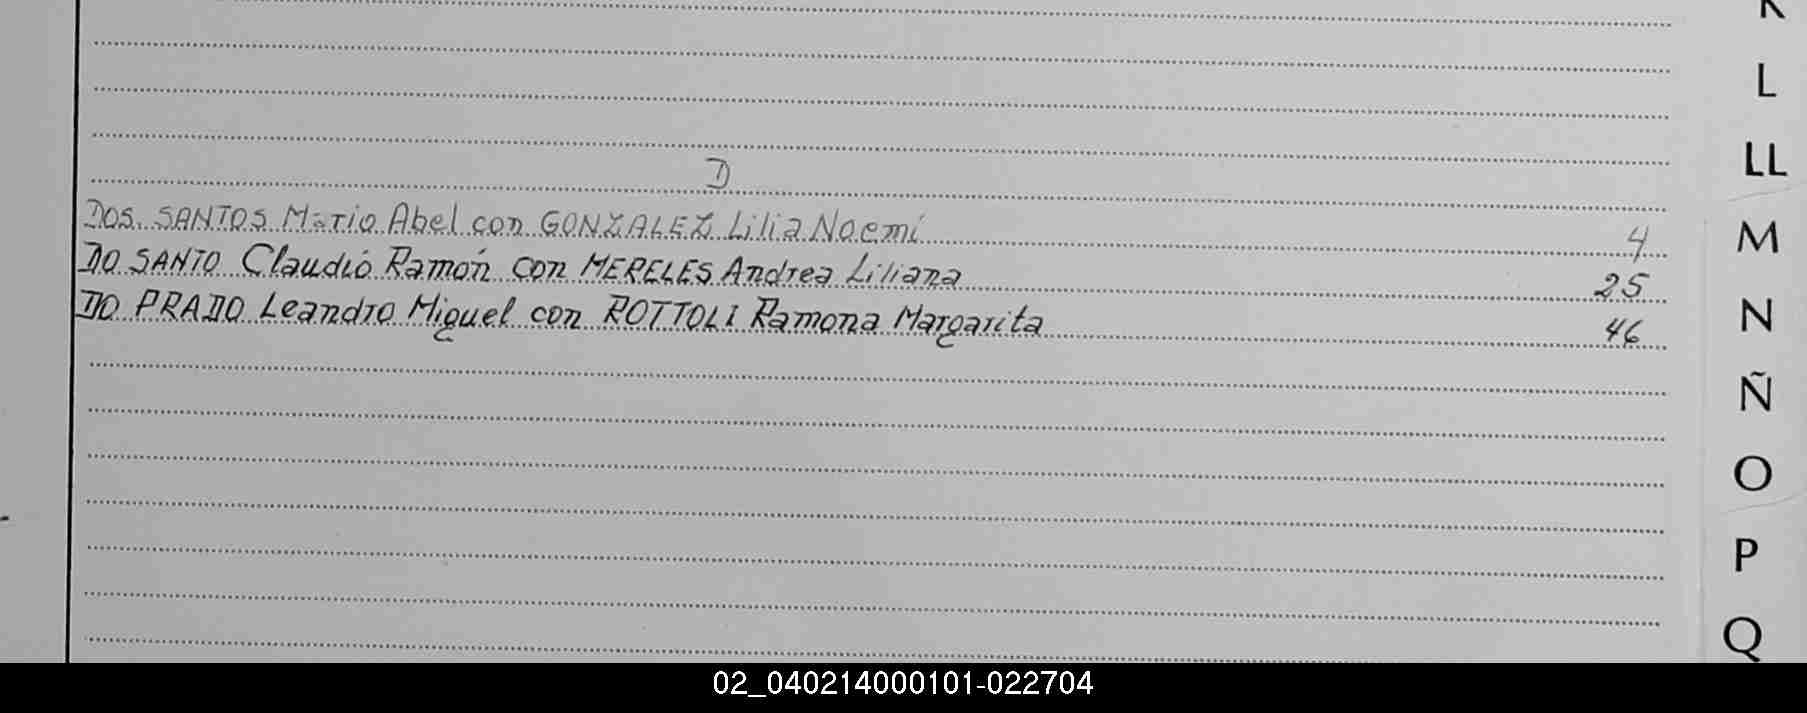 K
L
LL
D
DOS. SANTOS Mario Abel con GONZALEZ Lilia Noemí 4
M
DO SANTO Claudio Ramón con MERELES Andrea Liliana 25
DO PRADO Leandro Miguel con ROTTOLI Ramona Margarita 46
N
Ñ
O
P
Q
02_040214000101-022704